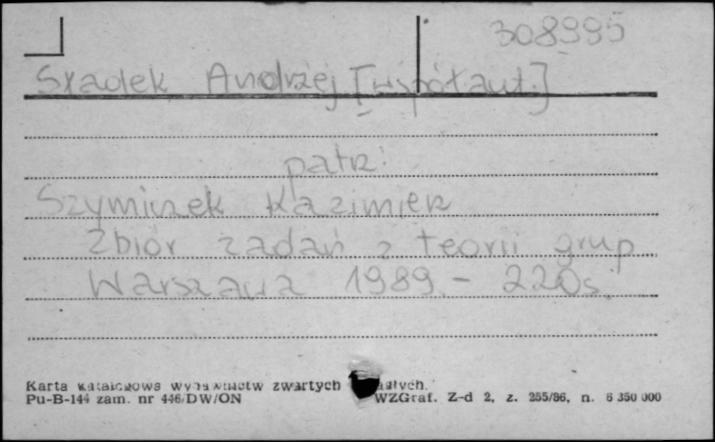 308995
Sładek Andrzej [współaut.]
patrz:
Szymiczek Kazimierz
Zbiór zadań z teorii grup
Warszawa 1989. - 220s.
Karta katalogowa wydawnictw zwartych
Pu-B-144 zam. nr 446/DW/ON WZGraf. Z-d 2, z. 255/86, n. 6 350 000